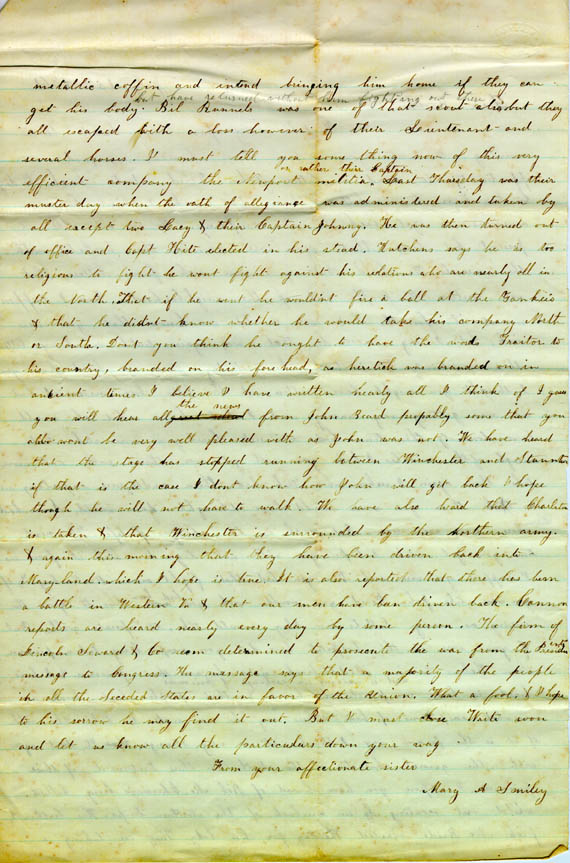 metallic coffin and intend bringing him home if they can
but have returned without him
get his body. Bil Runnels was one of that scout also but they
all escaped with a loss however of their Lieutenant and
several horses. I must tell you some thing now of this very
or rather their Captain
efficient company the Newport melitia. Last Thursday was their
muster day when the oath of allegiance was administered and taken by
all except two Lacy & their Captain Johnny. He was then turned out
of office and Capt Hite elected in his stead. Hutchens says he is too
religious to fight he wont fight against his relations who are nearly all in
the North. That if he went he wouldnt fire a ball at the Yankeis
& that he didnt know whether he would take his company North
or South. Dont you think he ought to have the words Traitor to
his country, branded on his fore head, as heretick was branded on in
ancient times. I believe I have written nearly all I think of I guess
the news
you will hear all great deal from John Beard propably some that you
also wont be very well pleased with as John was not. We have heard
that the stage has stopped running between Winchester and Staunton
if that is the case I dont know how John will get back I hope
though he will not have to walk. We have also heard that Charleston
is taken & that Winchester is surrounded by the northern army.
& again this morning that they have been driven back into
Maryland. which I hope is true. It is also reported that there has been
a battle in Western Va & that our men have ban driven back. Cannon
reports are heard nearly every day by some person. The firm of
Lincoln Seward & Co seem determined to prosecute the war from the Presidents
message to Congress. The message says that a majority of the people
in all the Seceded States are in favor of the Union. What a fool. & I hope
to his sorrow he may find it out. But I must close Waite soon
and let us know all the particulars down your way
From your affectionate sister
Mary A Smiley